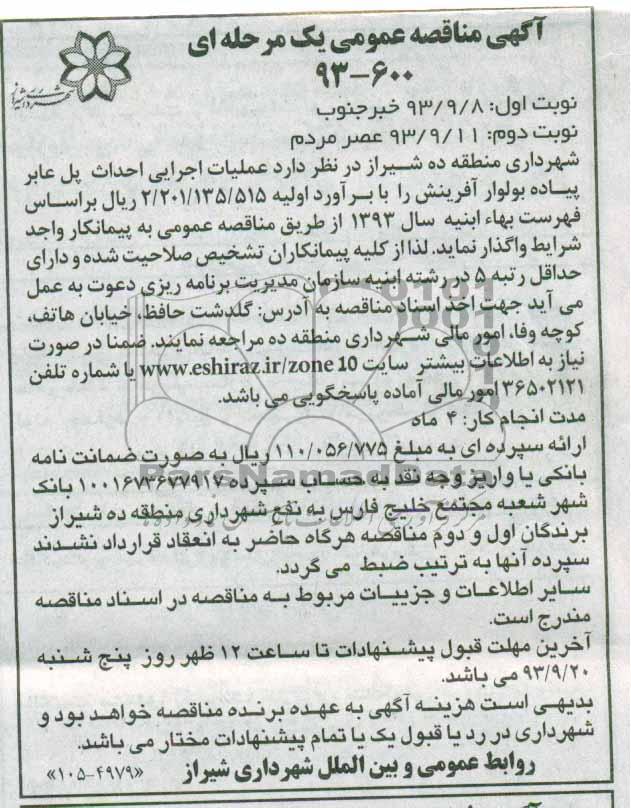 آگهی مناقصه عمومی یک مرحله ای
۹۳-۶۰۰
شهرداری شیراز
نوبت اول: ۹۳/۹/۸ خبرجنوب
نوبت دوم: ۹۳/۹/۱۱ عصر مردم
شهرداری منطقه ده شیراز در نظر دارد عملیات اجرایی احداث پل عابر
پیاده بولوار آفرینش را با برآورد اولیه ۲/۲۰۱/۱۳۵/۵۱۵ ریال براساس
فهرست بهاء ابنیه سال ۱۳۹۳ از طریق مناقصه عمومی به پیمانکار واجد
شرایط واگذار نماید. لذا از کلیه پیمانکاران تشخیص صلاحیت شده و دارای
حداقل رتبه ۵ در رشته ابنیه سازمان مدیریت برنامه ریزی دعوت به عمل
می آید جهت اخذ اسناد مناقصه به آدرس: گلدشت حافظ، خیابان هاتف،
کوچه وفا، امور مالی شهرداری منطقه ده مراجعه نمایند. ضمنا در صورت
نیاز به اطلاعات بیشتر سایت www.eshiraz.ir/zone 10 یا شماره تلفن
۳۶۵۰۲۱۲۱ امور مالی آماده پاسخگویی می باشد.
مدت انجام کار: ۴ ماه
ارائه سپرده ای به مبلغ ۱۱۰/۰۵۶/۷۷۵ ریال به صورت ضمانت نامه
بانکی یا واریز وجه نقد به حساب سپرده ۱۰۰۱۶۷۳۶۷۷۹۱۷ بانک
شهر شعبه مجتمع خلیج فارس به نفع شهرداری منطقه ده شیراز
برندگان اول و دوم مناقصه هرگاه حاضر به انعقاد قرارداد نشدند
سپرده آنها به ترتیب ضبط می گردد.
سایر اطلاعات و جزییات مربوط به مناقصه در اسناد مناقصه
مندرج است.
آخرین مهلت قبول پیشنهادات تا ساعت ۱۲ ظهر روز پنج شنبه
۹۳/۹/۲۰ می باشد.
بدیهی است هزینه آگهی به عهده برنده مناقصه خواهد بود و
شهرداری در رد یا قبول یک یا تمام پیشنهادات مختار می باشد.
روابط عمومی و بین الملل شهرداری شیراز «۱۰۵-۴۹۷۹»
ParsNamadData